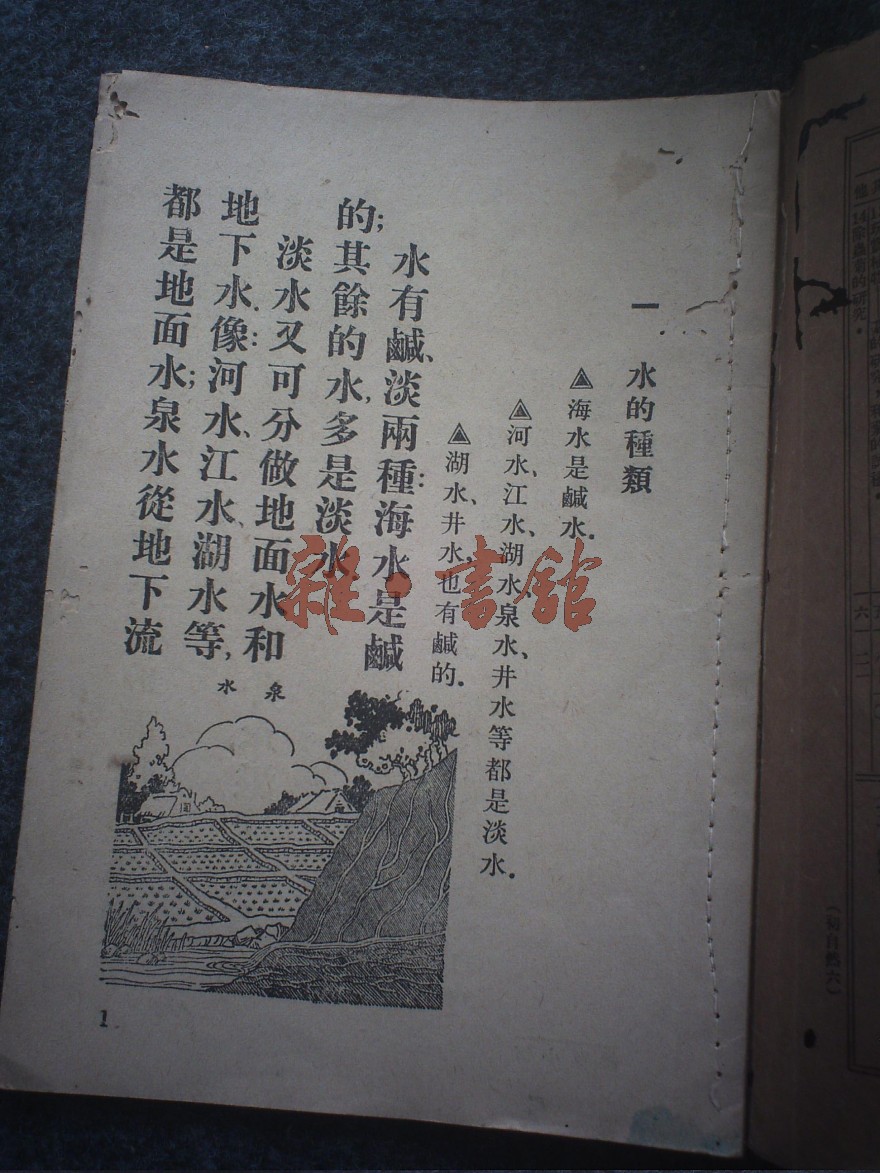 一 水的種類
▲海水是鹹水.
▲河水、江水、湖水、泉水、井水等都是淡水.
▲湖水、井水、也有鹹的.
水有鹹、淡兩種:海水是鹹
的;其餘的水,多是淡水.
淡水又可分做地面水和
地下水.:像河水、江水、湖水等,
都是地面水;泉水從地下流
泉水
1
雜·書館
14除蟲菊的研究.
(初自然六)